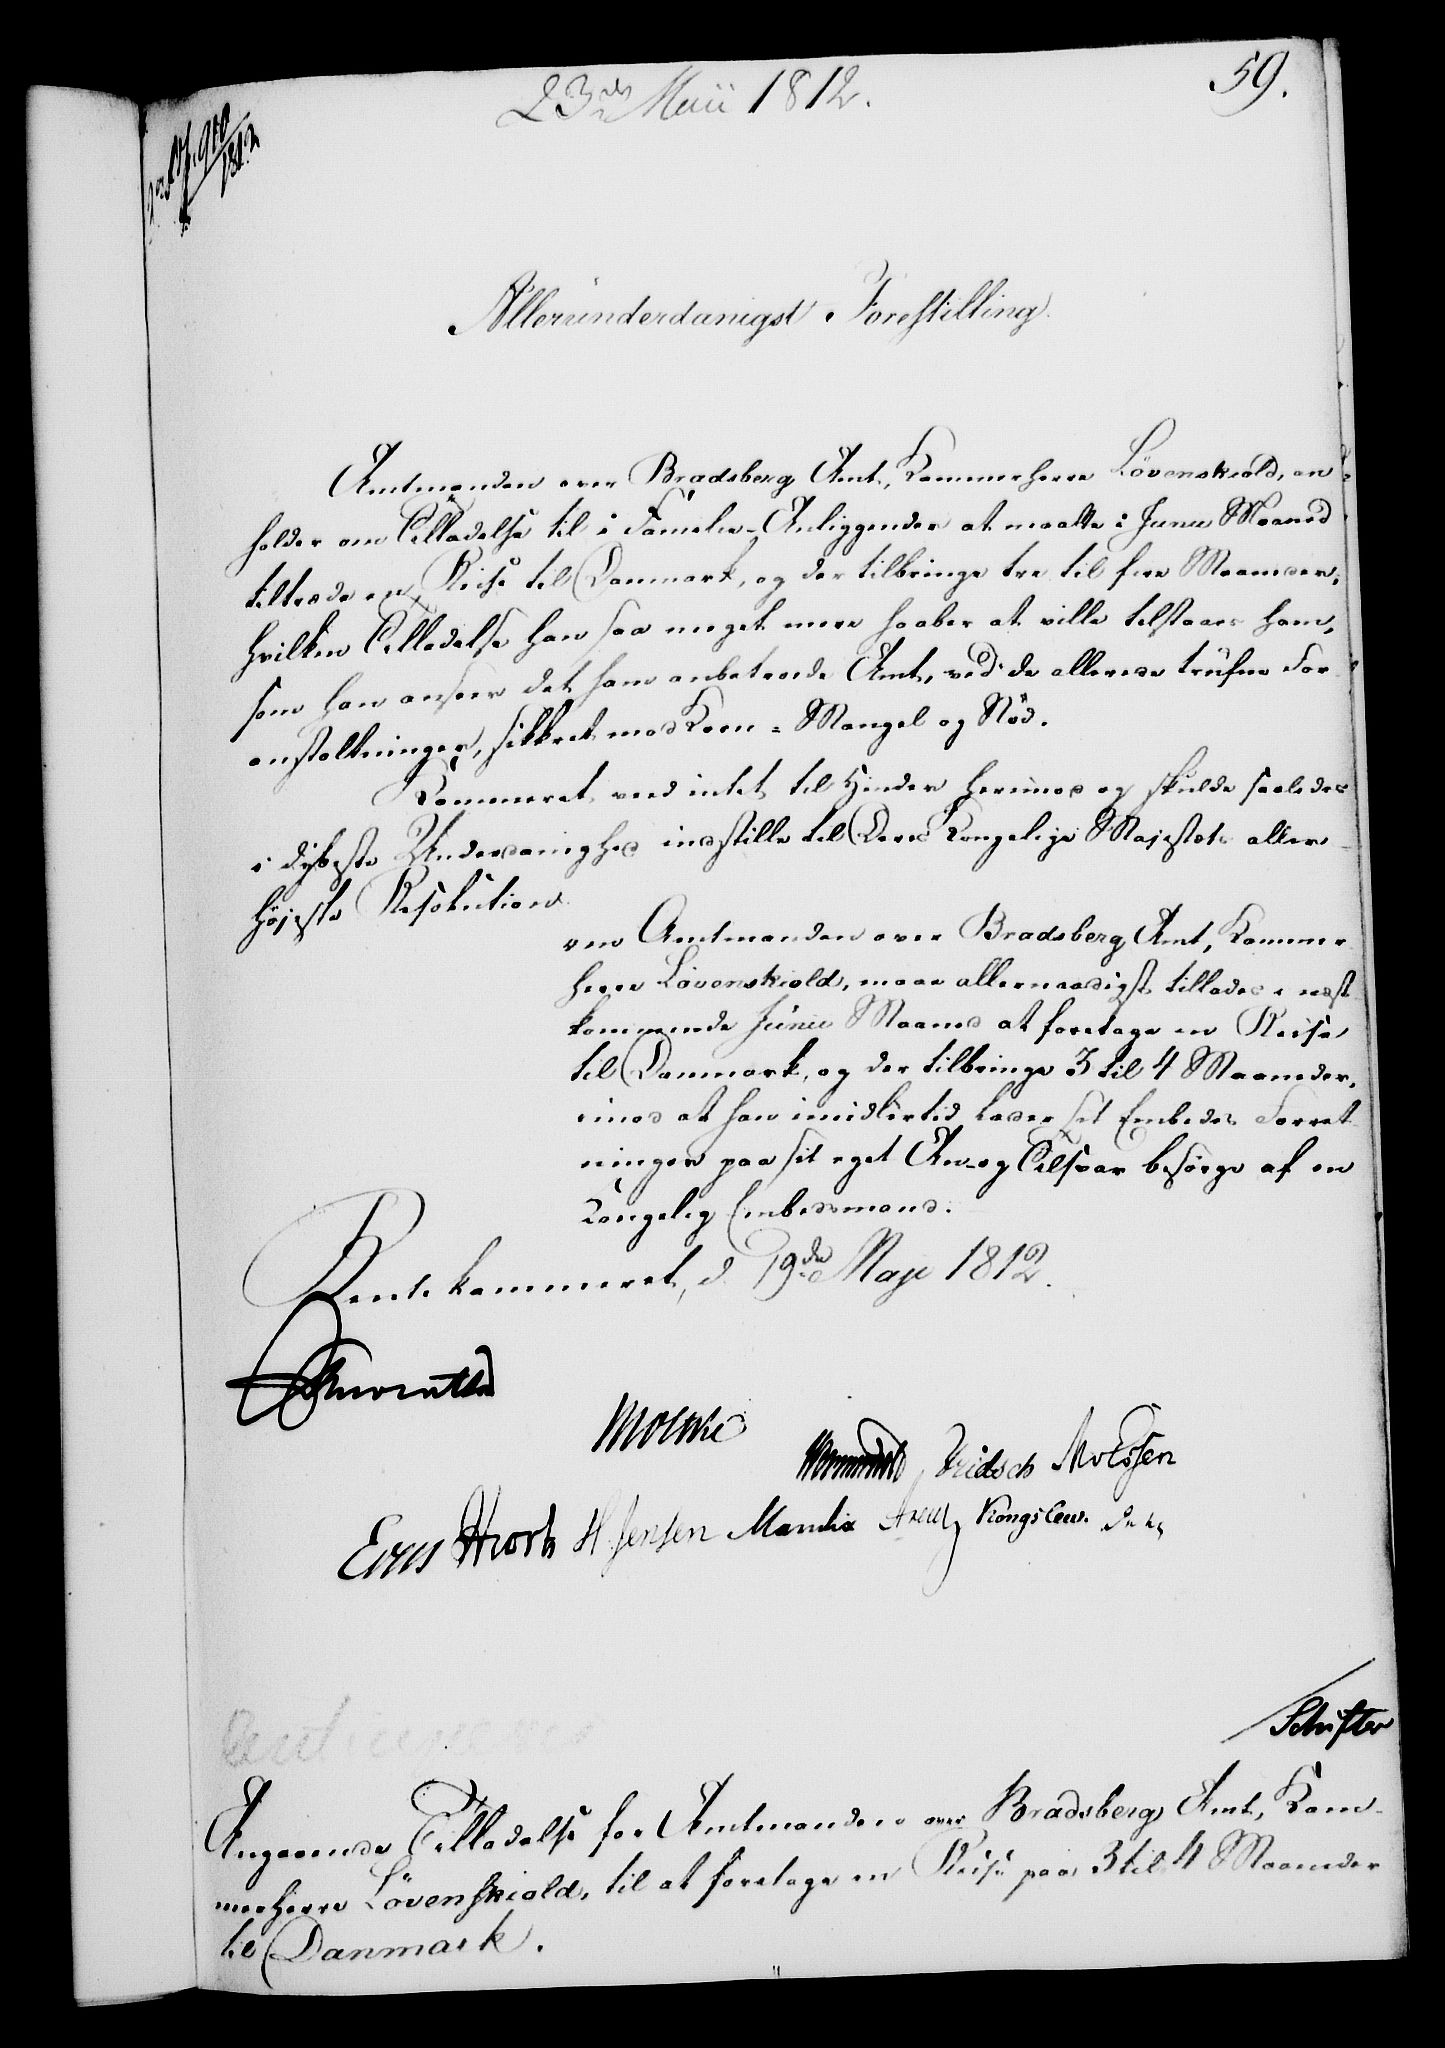 23de Maii 1812.
59.
910
1812
Allerunderdanigst Forestilling.
Amtmanden over Bradsberg Amt, Kammerherre Lövenskiold, an¬
holder om Tilladelse til i Familie-Anliggender at maatte i Junii Maaned
tiltræde en Reise til Danmark, og der tilbringe tre til fire Maaneder;
hvilken Tilladelse han saa meget mere haaber at ville tilstaaes ham,
som han anseer det ham anbetroede Amt, ved de allerede trufne For¬
anstaltninger, sikkret mod Korn-Mangel og Nöd.
Kammeret veed intet til Hinder herimod og skulde saaledes
i dybeste Underdanighed indstille til Deres Kongelige Majestæts aller¬
höjeste Resolution
om Amtmanden over Bradsberg Amt, Kammer¬
herre Lövenskiold, maae allernaadigst tillades i næst¬
kommende Junii Maaned at foretage en Reise
til Danmark, og der tilbringe 3 til 4 Maaneder,
imod at han imidlertid lader sit Embedes Forret¬
ninger paa sit eget An- og Tilsvar besörge af en
Kongelig Embedsmand.
Rentekammeret, d. 19de Maji 1812.
Moltke
Fridsch
Hiorth H. Jensen Manthe Kongslew.
Schifter
Angaaende Tilladelse for Amtmanden over Bradsberg Amt, Kam¬
merherre Lövenskiold, til at foretage en Reise paa 3 til 4 Maaneder
til Danmark.